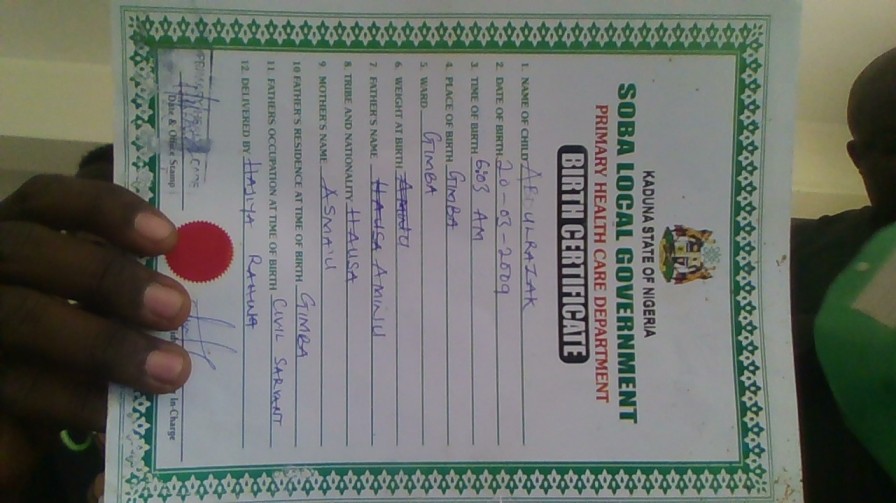 KADUNA STATE OF NIGERIA
SOBA LOCAL GOVERNMENT
PRIMARY HEALTH CARE DEPARTMENT
BIRTH CERTIFICATE
1. NAME OF CHILD ABDULRAZAK
2. DATE OF BIRTH 20-03-2009
3. TIME OF BIRTH 6:03 AM
4. PLACE OF BIRTH GIMBA
5. WARD GIMBA
6. WEIGHT AT BIRTH
7. FATHER'S NAME HAUSA AMINU
8. TRIBE AND NATIONALITY HAUSA
9. MOTHER'S NAME ASMA'U
10 FATHER'S RESIDENCE AT TIME OF BIRTH GIMBA
11. FATHERS OCCUPATION AT TIME OF BIRTH CIVIL SARVANT
12. DELIVERED BY HAJIYA
Date & Office Stamp In-Charge